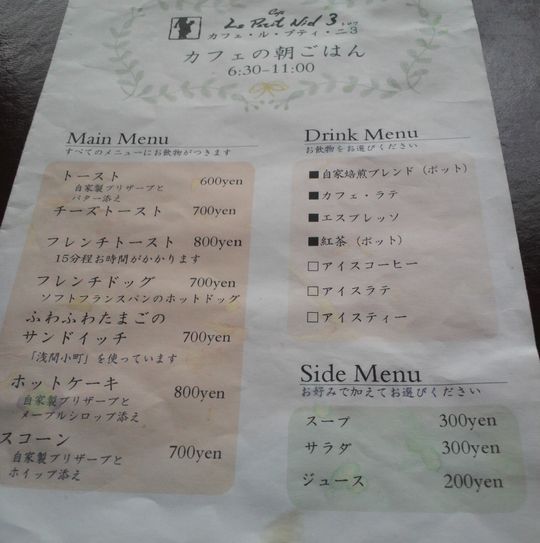 Cafe
Le Petit Nid 3 トロワ
カフェ・ル・プティ・ニ3
カフェの朝ごはん
6:30-11:00
Main Menu
すべてのメニューにお飲物がつきます
トースト 600yen
自家製プリザーブと
バター添え
チーズトースト 700yen
フレンチトースト 800yen
15分程お時間がかかります
フレンチドッグ 700yen
ソフトフランスパンのホットドッグ
ふわふわたまごの
サンドイッチ 700yen
「浅間小町」を使っています
ホットケーキ 800yen
自家製プリザーブと
メープルシロップ添え
スコーン 700yen
自家製プリザーブと
ホイップ添え
Drink Menu
お飲物をお選びください
■自家焙煎ブレンド（ポット）
■カフェ・ラテ
■エスプレッソ
■紅茶（ポット）
□アイスコーヒー
□アイスラテ
□アイスティー
Side Menu
お好みで加えてお選びください
スープ 300yen
サラダ 300yen
ジュース 200yen